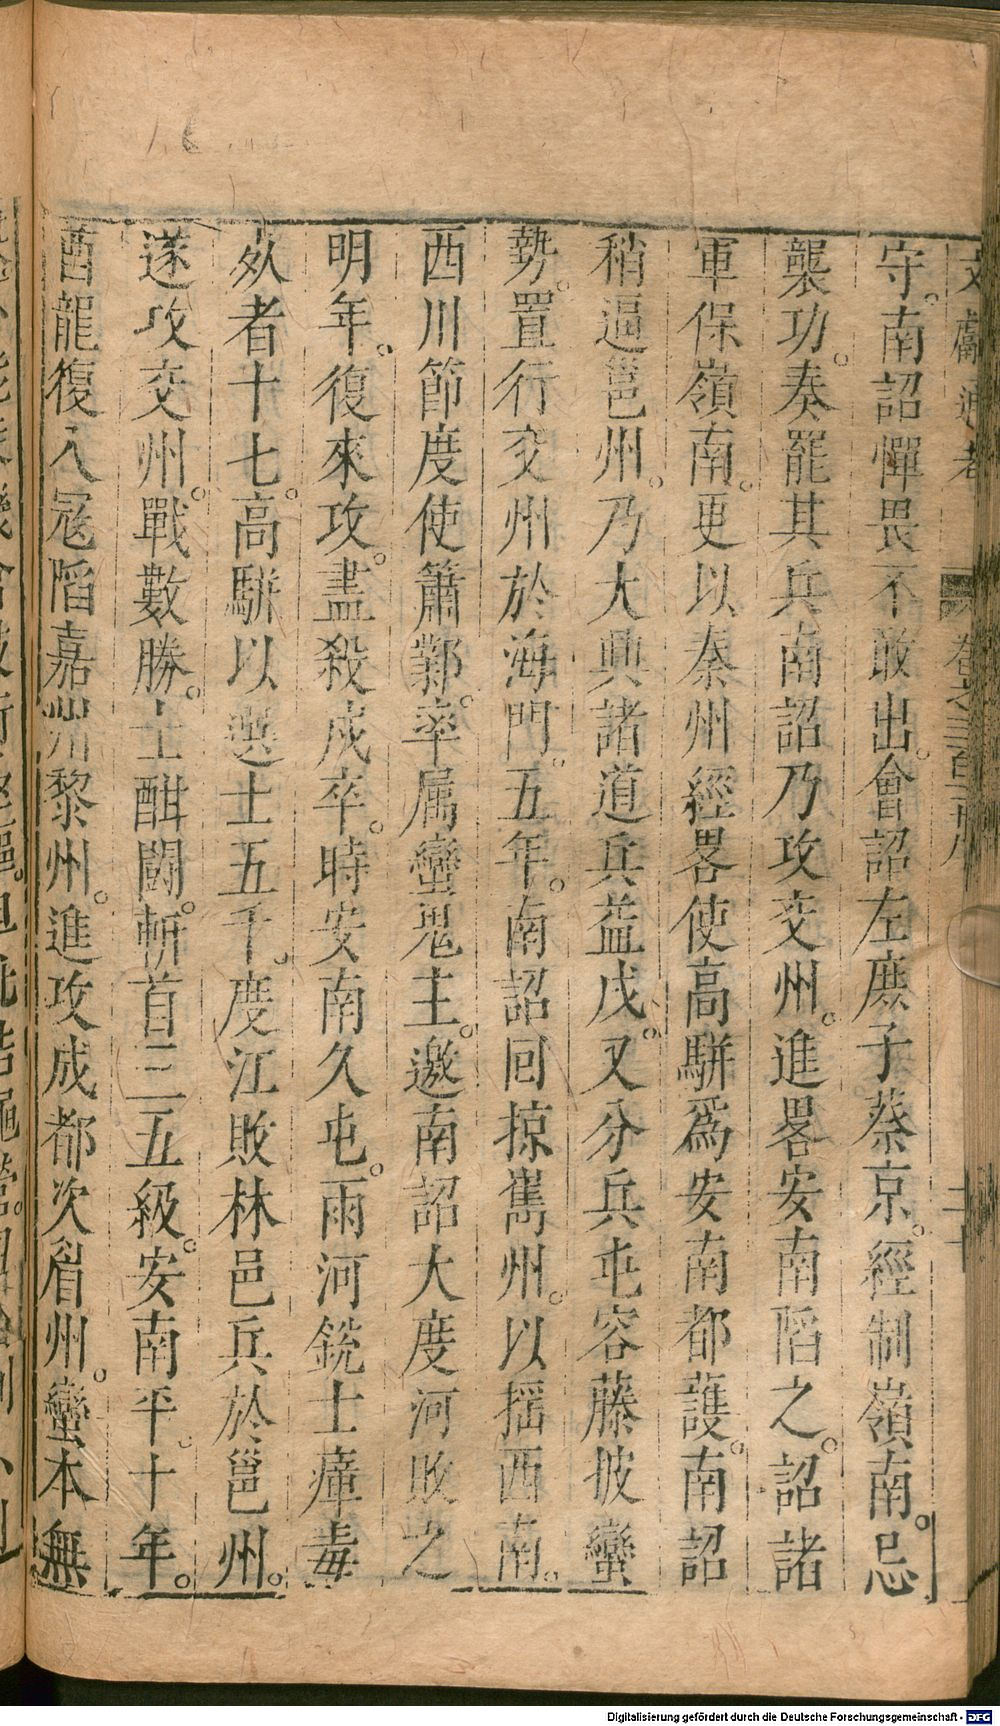 文獻通考 卷之三百二十八 二十
守。南詔憚畏不敢出。會詔左庶子蔡京。經制嶺南。忌
襲功。奏罷其兵南詔乃攻交州。進畧安南陷之。詔諸
軍保嶺南。更以秦州經畧使高駢爲安南都護。南詔
稍逼邕州。乃大興諸道兵益戍。又分兵屯容藤披蠻
勢。置行交州於海門。五年。南詔回掠嶲州。以搖西南。
西川節度使簫鄴。率属蠻鬼主。邀南詔大度河敗之
明年。復來攻。盡殺戍卒。時安南久屯。兩河銳士瘴毒
死者十七。高駢以選士五千。度江敗林邑兵於邕州。
遂攻交州。戰數勝。士酣鬪。斬首三五級。安南平。十年。
酋龍復入寇陷嘉州黎州。進攻成都次眉州。蠻本無
Digitalisierung gefördert durch die Deutsche Forschungsgemeinschaft - DFG